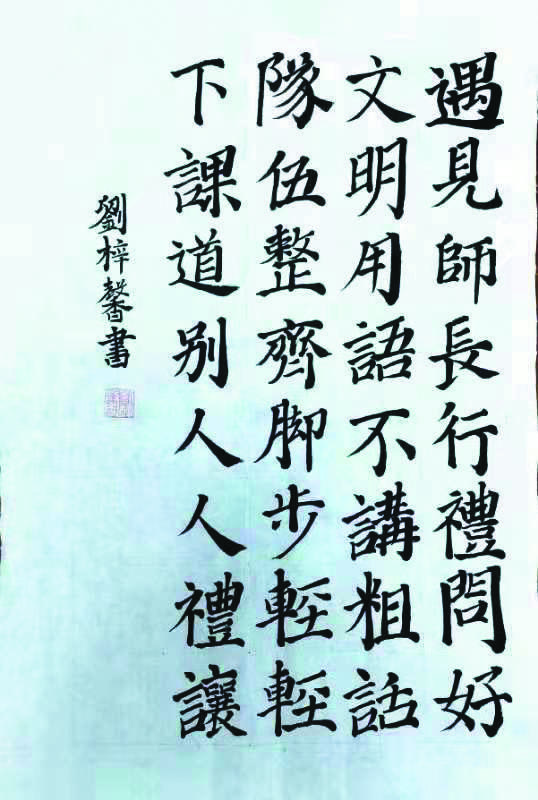 遇見師長行禮問好
文明用語不講粗話
隊伍整齊脚步輕輕
下課道别人人禮讓
劉梓馨書